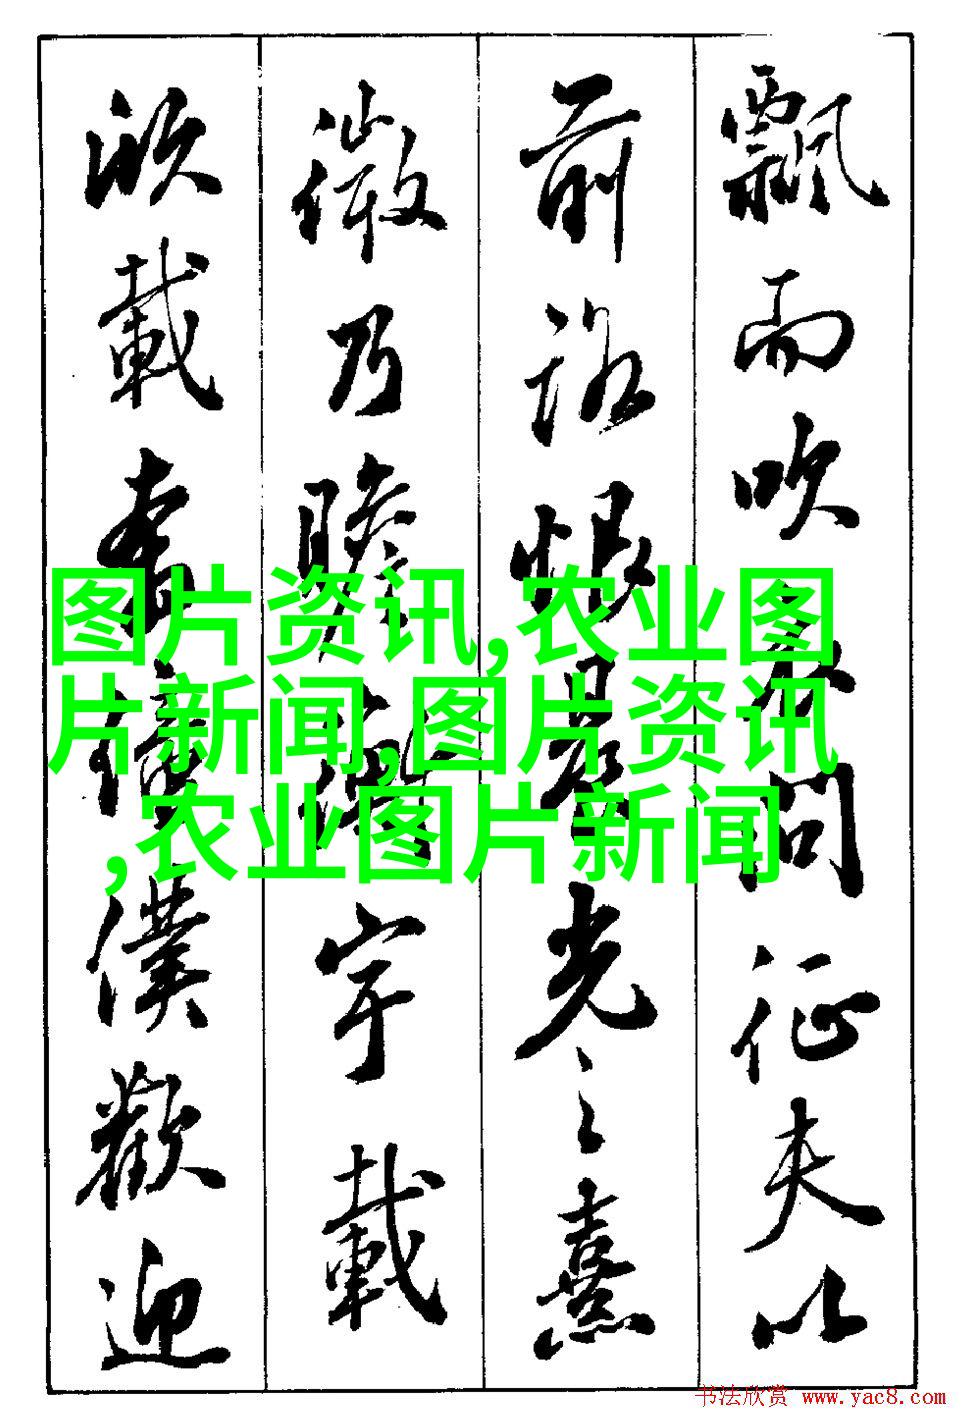 飘而吹衣问征夫以
前路恨晨光之熹
微乃瞻衡宇载
欣载奔僮仆歡迎
图片资讯,农业图
片新闻,图片资讯
,农业图片新闻
书法欣赏 www.yac8.com